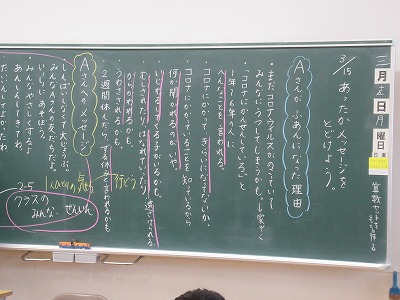 三月
15日
月曜日
日直
3/15 あったかメッセージを
とどけよう。
Aさんがふあんになった理由
・まだコロナウイルスがのこっていて
みんなにうつしてしまうかも。
「コロナにかんせんしている」と
1年〜6年の人に
へんなことを言われる。
・コロナにかかって、きらいになってないか。
・コロナにかかっていることを知っているから
何か聞かれるのがいや。
・いじわるしてくる子がいるかも。
むしされたり、はなれていったり、遠ざけられる
・からかわれるかも。
・うわさされるかも。
2週間休んだら、ずる休みと言われるかも。
行どう
Aさんへのメッセージ
しんぱいしなくて大じょうぶ。
みんなAさんの友だちだよ。
いっしょにあそぼうね。
みんなやさしくするよ。
あんしんしてきてね。
2-5
クラスの
みんな、ぜんいん